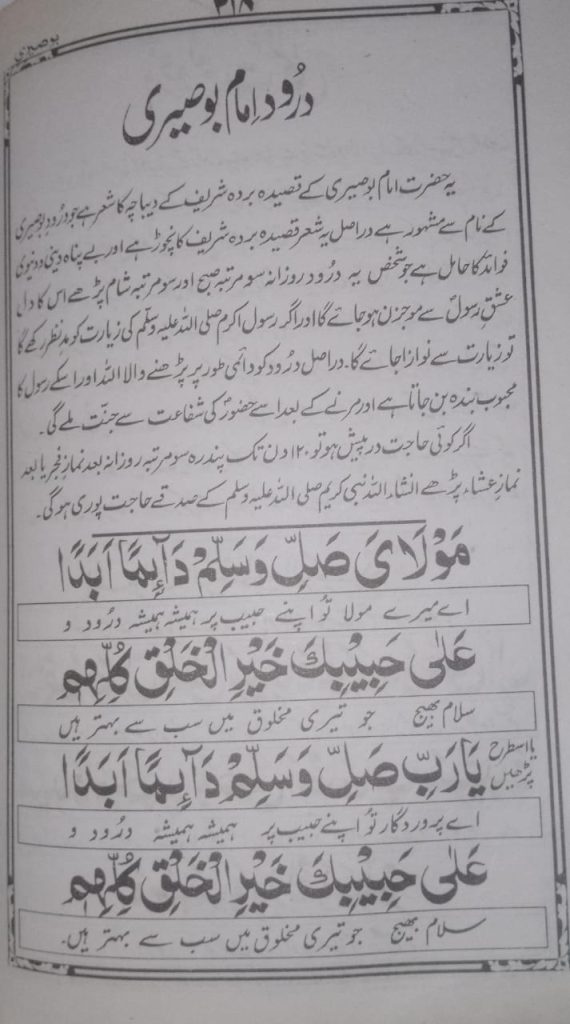 ۲۱۸
بوصیری
درُود امام بوصیری
یہ حضرت امام بوصیری کے قصیدہ بردہ شریف کے دیباچہ کا شعر ہے جو درُود بوصیری
کے نام سے مشہور ہے دراصل یہ شعر قصیدہ بردہ شریف کا نچوڑ ہے اور بے پناہ دینی و دنیوی
فوائد کا حامل ہے جو شخص یہ درُود روزانہ سو مرتبہ صبح اور سو مرتبہ شام پڑھے اس کا دل
عشقِ رسولؐ سے موجزن ہو جائے گا اور اگر رسول اکرم صلی اللہ علیہ وسلّم کی زیارت کو مدِنظر رکھے گا
تو زیارت سے نوازا جائے گا۔ دراصل درُود کو دائمی طور پر پڑھنے والا اللہ اور اسکے رسول کا
محبوب بندہ بن جاتا ہے اور مرنے کے بعد اسے حضورؐ کی شفاعت سے جنّت ملے گی۔
اگر کوئی حاجت درپیش ہو تو ۱۲۰ دن تک پندرہ سو مرتبہ روزانہ بعد نمازِ فجر یا بعد
نمازِ عشاء پڑھے انشاء اللہ نبی کریم صلی اللہ علیہ وسلم کے صدقے حاجت پوری ہو گی۔
مَوْلَایَ صَلِّ وَسَلِّمْ دَآئِمًا اَبَدًا
اے میرے مولا تُو اپنے حبیب پر ہمیشہ ہمیشہ درُود و
عَلٰی حَبِیْبِكَ خَیْرِ الْخَلْقِ کُلِّهِمِ
سلام بھیج جو تیری مخلوق میں سب سے بہتر ہیں
یا اسطرح پڑھیں
یَارَبِّ صَلِّ وَسَلِّمْ دَآئِمًا اَبَدًا
اے پروردگار تُو اپنے حبیب پر ہمیشہ ہمیشہ درُود و
عَلٰی حَبِیْبِكَ خَیْرِ الْخَلْقِ کُلِّهِمِ
سلام بھیج جو تیری مخلوق میں سب سے بہتر ہیں۔